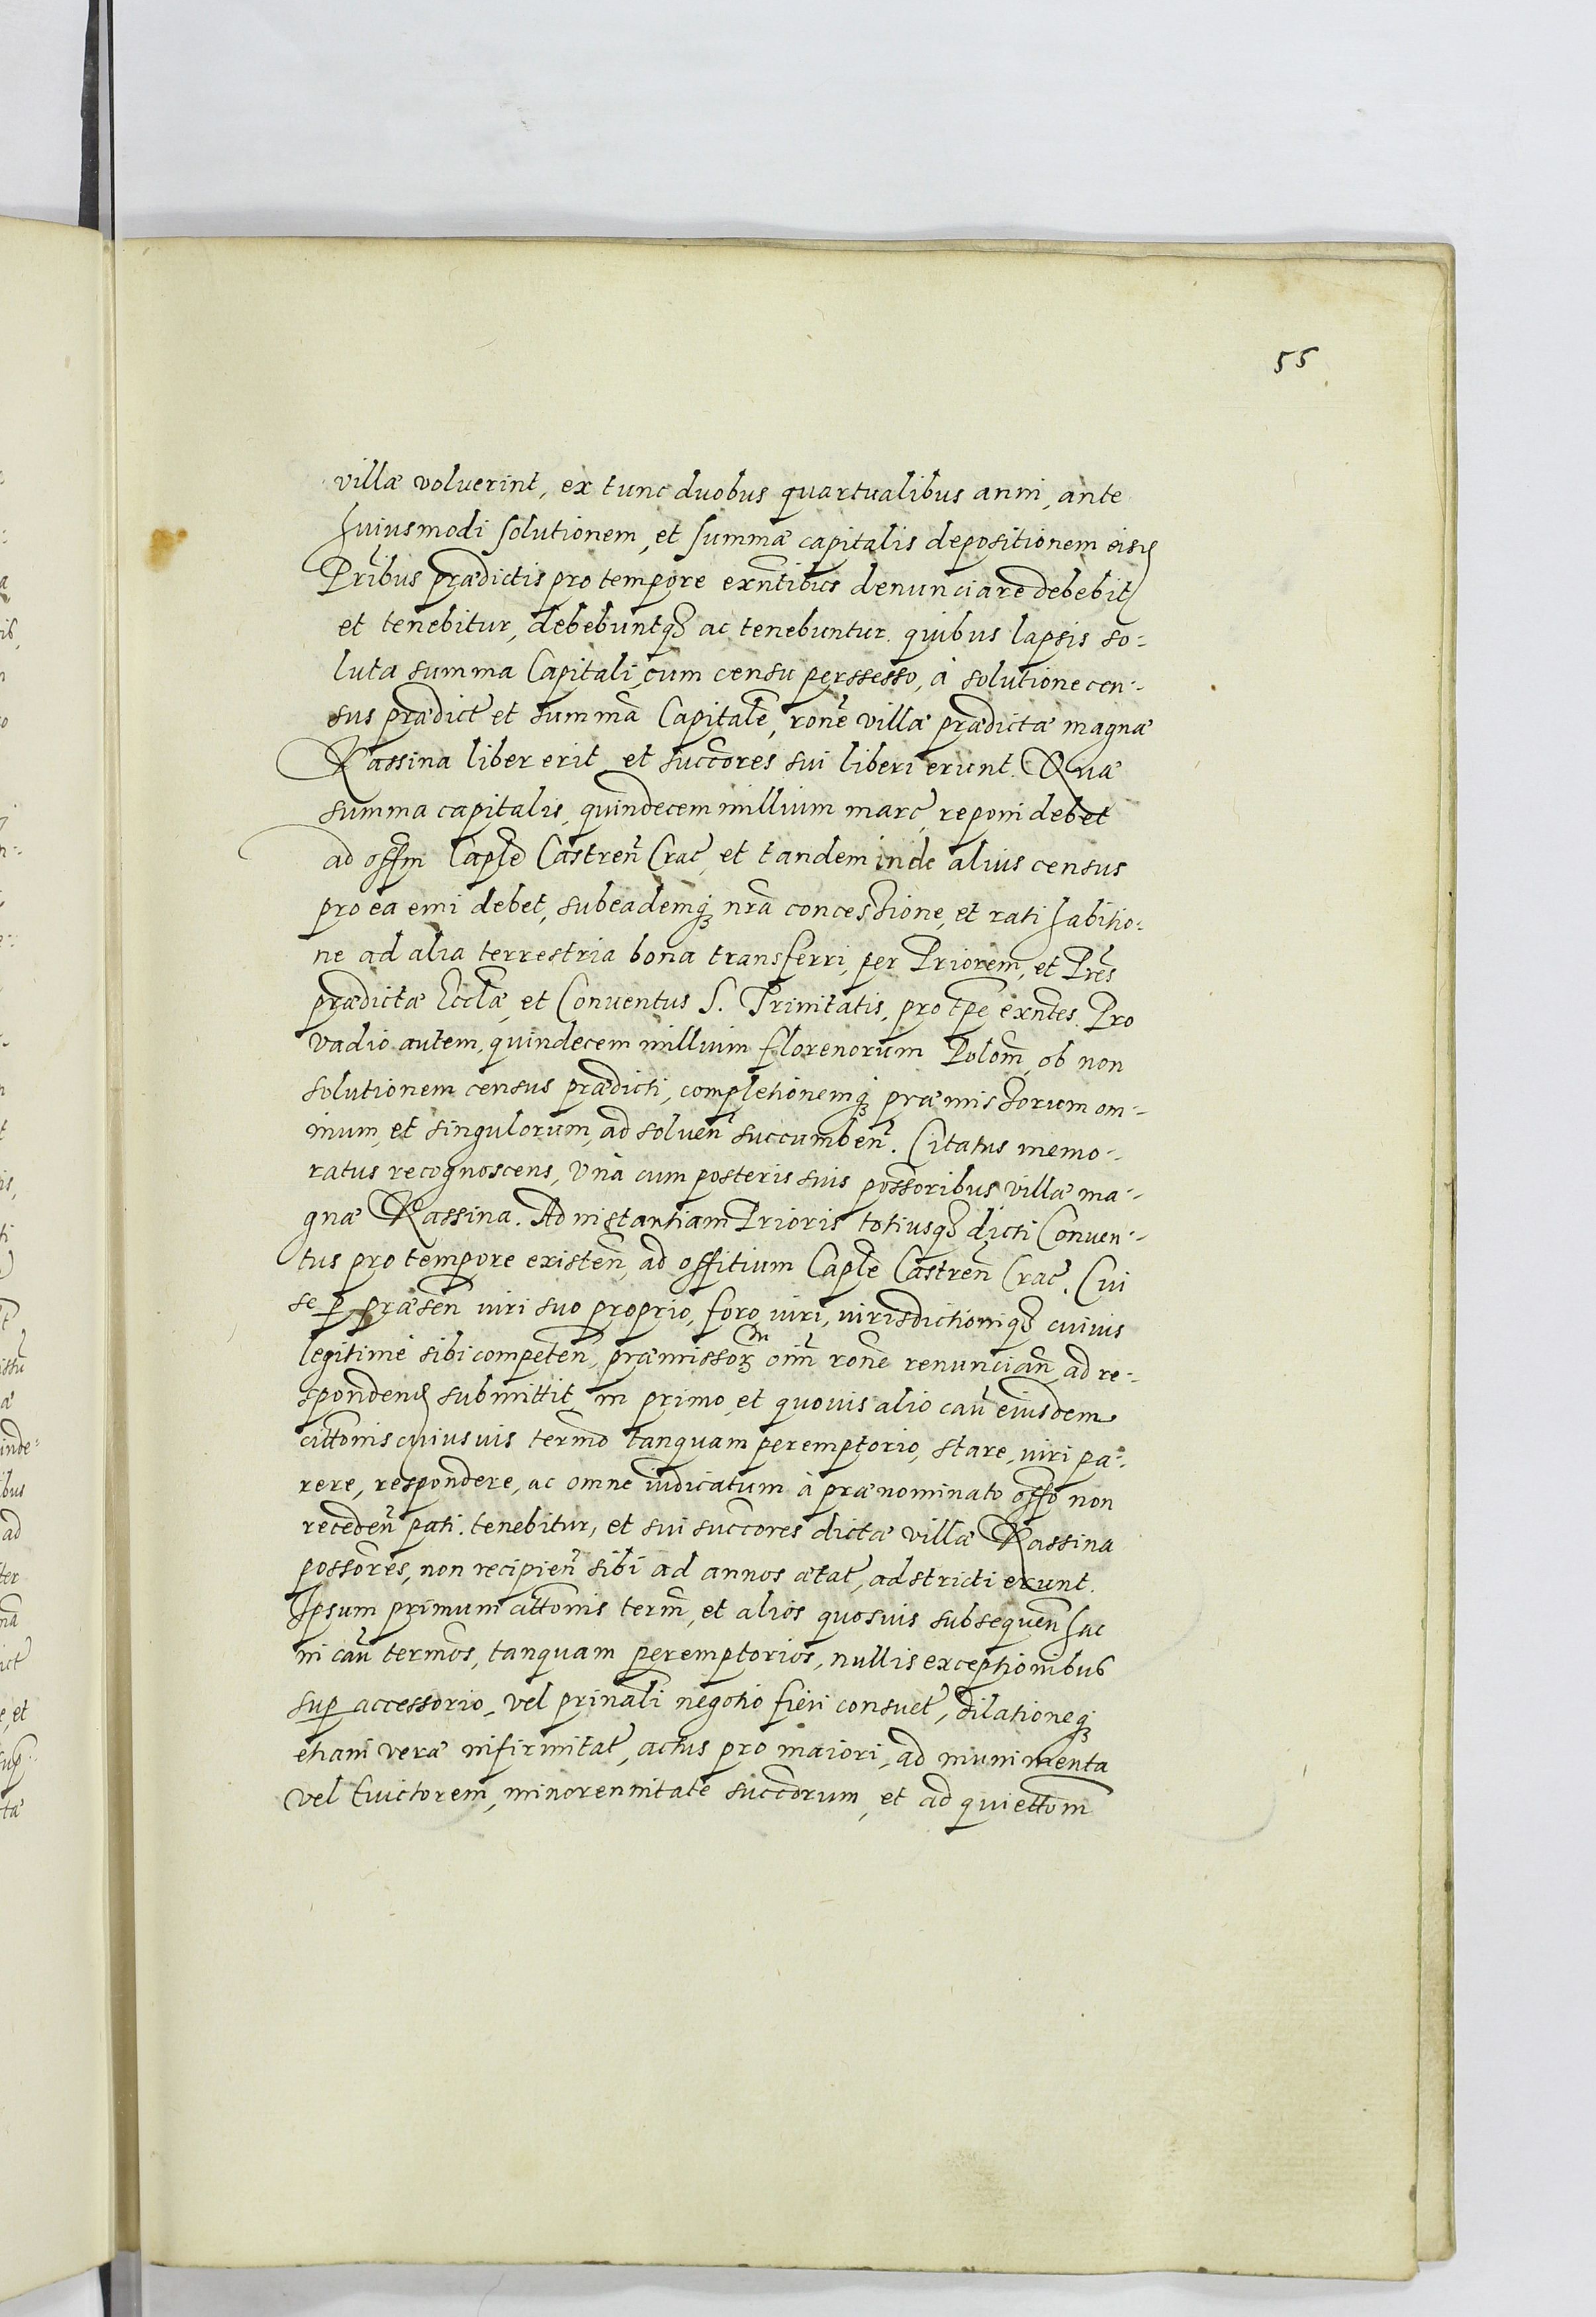 55
villæ voluerint, ex tunc duobus quartualibus anni, ante
huiusmodi solutionem, et summæ capitalis depositionem eisd
Pr̃ibus prædictis pro tempore exñtibus denunciare debebit,
et tenebitur, debebuntq₃ ac tenebuntur. quibus lapsis so-
luta summa Capitali, cum censu perssesso, à solutione cen-
sus prædict̃ et summã Capitalẽ, rone᷈ villæ prædictæ magnæ
Rassina liber erit et succ̃ores sui liberi erunt. Quæ
summa capitalis, quindecem millium marc̃, reponi debet
ad offm̃ Caplẽ Castren̑ Crac̃, et tandem inde alius census
pro ea emi debet, sub eademq₃ nr̃a concessione, et rati habitio-
ne ad alia terrestria bona transferri, per Priorem, et Pr̃es
prædictæ Eccl̃æ, et Conventus S. Trinitatis, pro tp̃e exñtes. Pro
vadio autem, quindecem millium florenorum Polom̃, ob non
solutionem census prædicti, completionemq₃ præmissorum om-
nium et singulorum, ad solven̑ succumben̑. Citatus memo-
ratus recognoscens, Unà cum posteris suis poss̃oribus villæ ma-
gnæ Rassina. Ad instantiam Prioris totiusq₃ dicti Conven-
tus pro tempore existen̑, ad offitium Caplẽ Castren̑ Crac̃. Cui
se p̱ præsen̑ iuri suo proprio, foro, iuri, iurisdictioniq₃ cuiuis
legitimè sibi competen̑, præmissoꝝ om̃ in ron̑e renuncian̑, ad re-
spondend submittit, in primo, et quouis alio caȗ eiusdem
citt̃onis cuiusuis term̃o tanquam peremptorio, stare, iuri pa-
rere, respondere, ac omne iudicatum à prænominato off̃o non
receden̑ pati. tenebitur, et sui succ̃ores dictæ villæ Rassina
poss̃ores, non recipien̑ sibi ad annos ætat̃, adstricti erunt.
Ipsum primum citt̃onis term̃, et alios quosuis subsequen̑ hac
in caȗ term̃os, tanquam peremptorios, nullis exceptionibus
sup̱ accessorio, vel prin̑ali negotio fieri consuet̃, dilationeq₃
etiam veræ infirmitat̃, actus pro maiori, ad munimenta
vel Evictorem, minorennitate succ̃orum, et ad quiett̃om